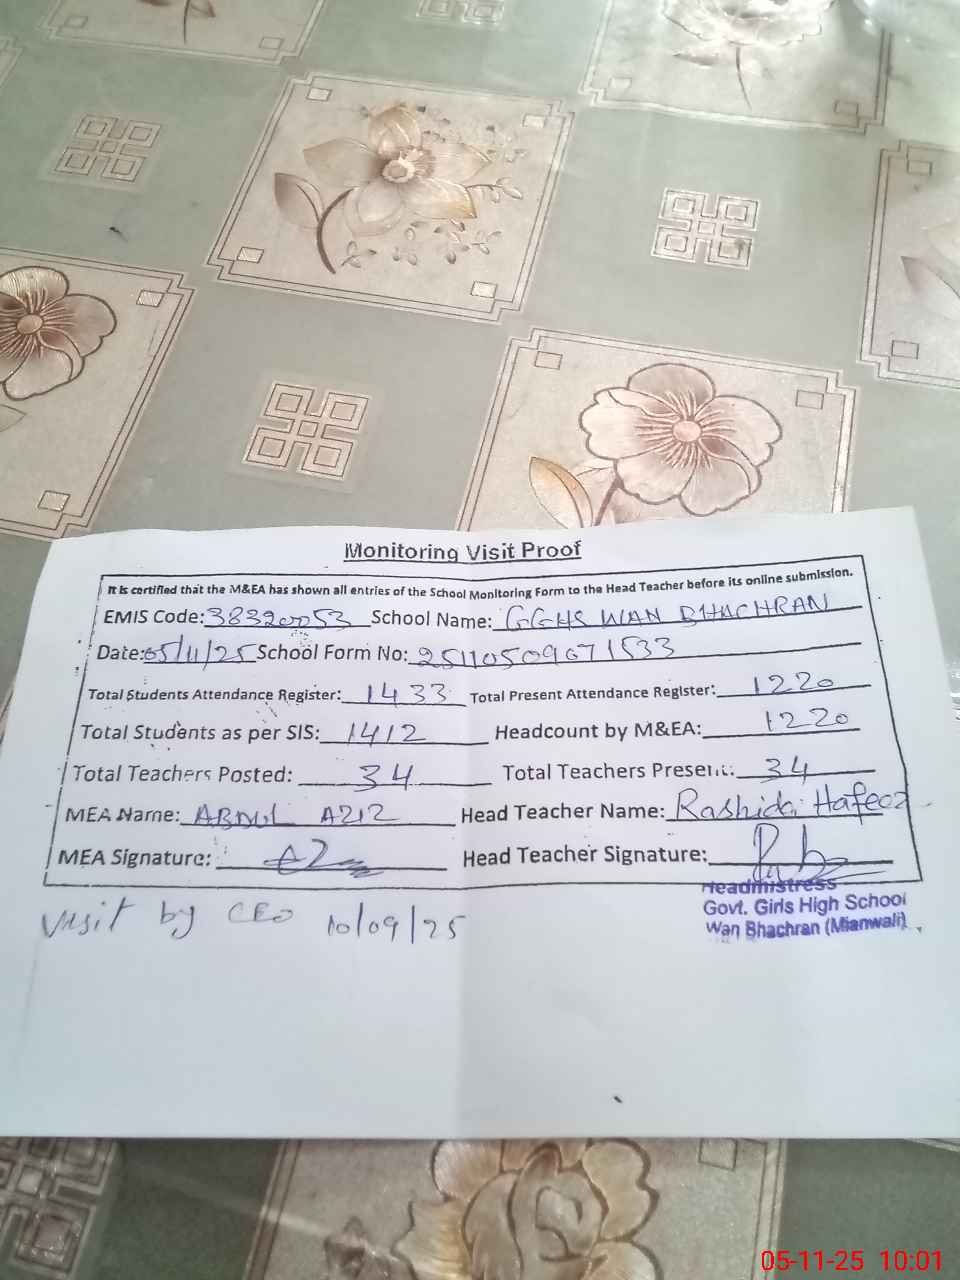 Monitoring Visit Proof
It is certified that the M&EA has shown all entries of the School Monitoring Form to the Head Teacher before its online submission.
EMIS Code: 38320053 School Name: GGHS WAN BHACHRAN
Date: 05/11/25 School Form No: 25110509071533
Total Students Attendance Register: 1433 Total Present Attendance Register: 1220
Total Students as per SIS: 1412 Headcount by M&EA: 1220
Total Teachers Posted: 34 Total Teachers Present: 34
MEA Name: ABDUL AZIZ Head Teacher Name: Rashida Hafeez
MEA Signature: Head Teacher Signature:
Headmistress
Govt. Girls High School
Wan Bhachran (Mianwali)
Visit by CEO 10/09/25
05-11-25 10:01